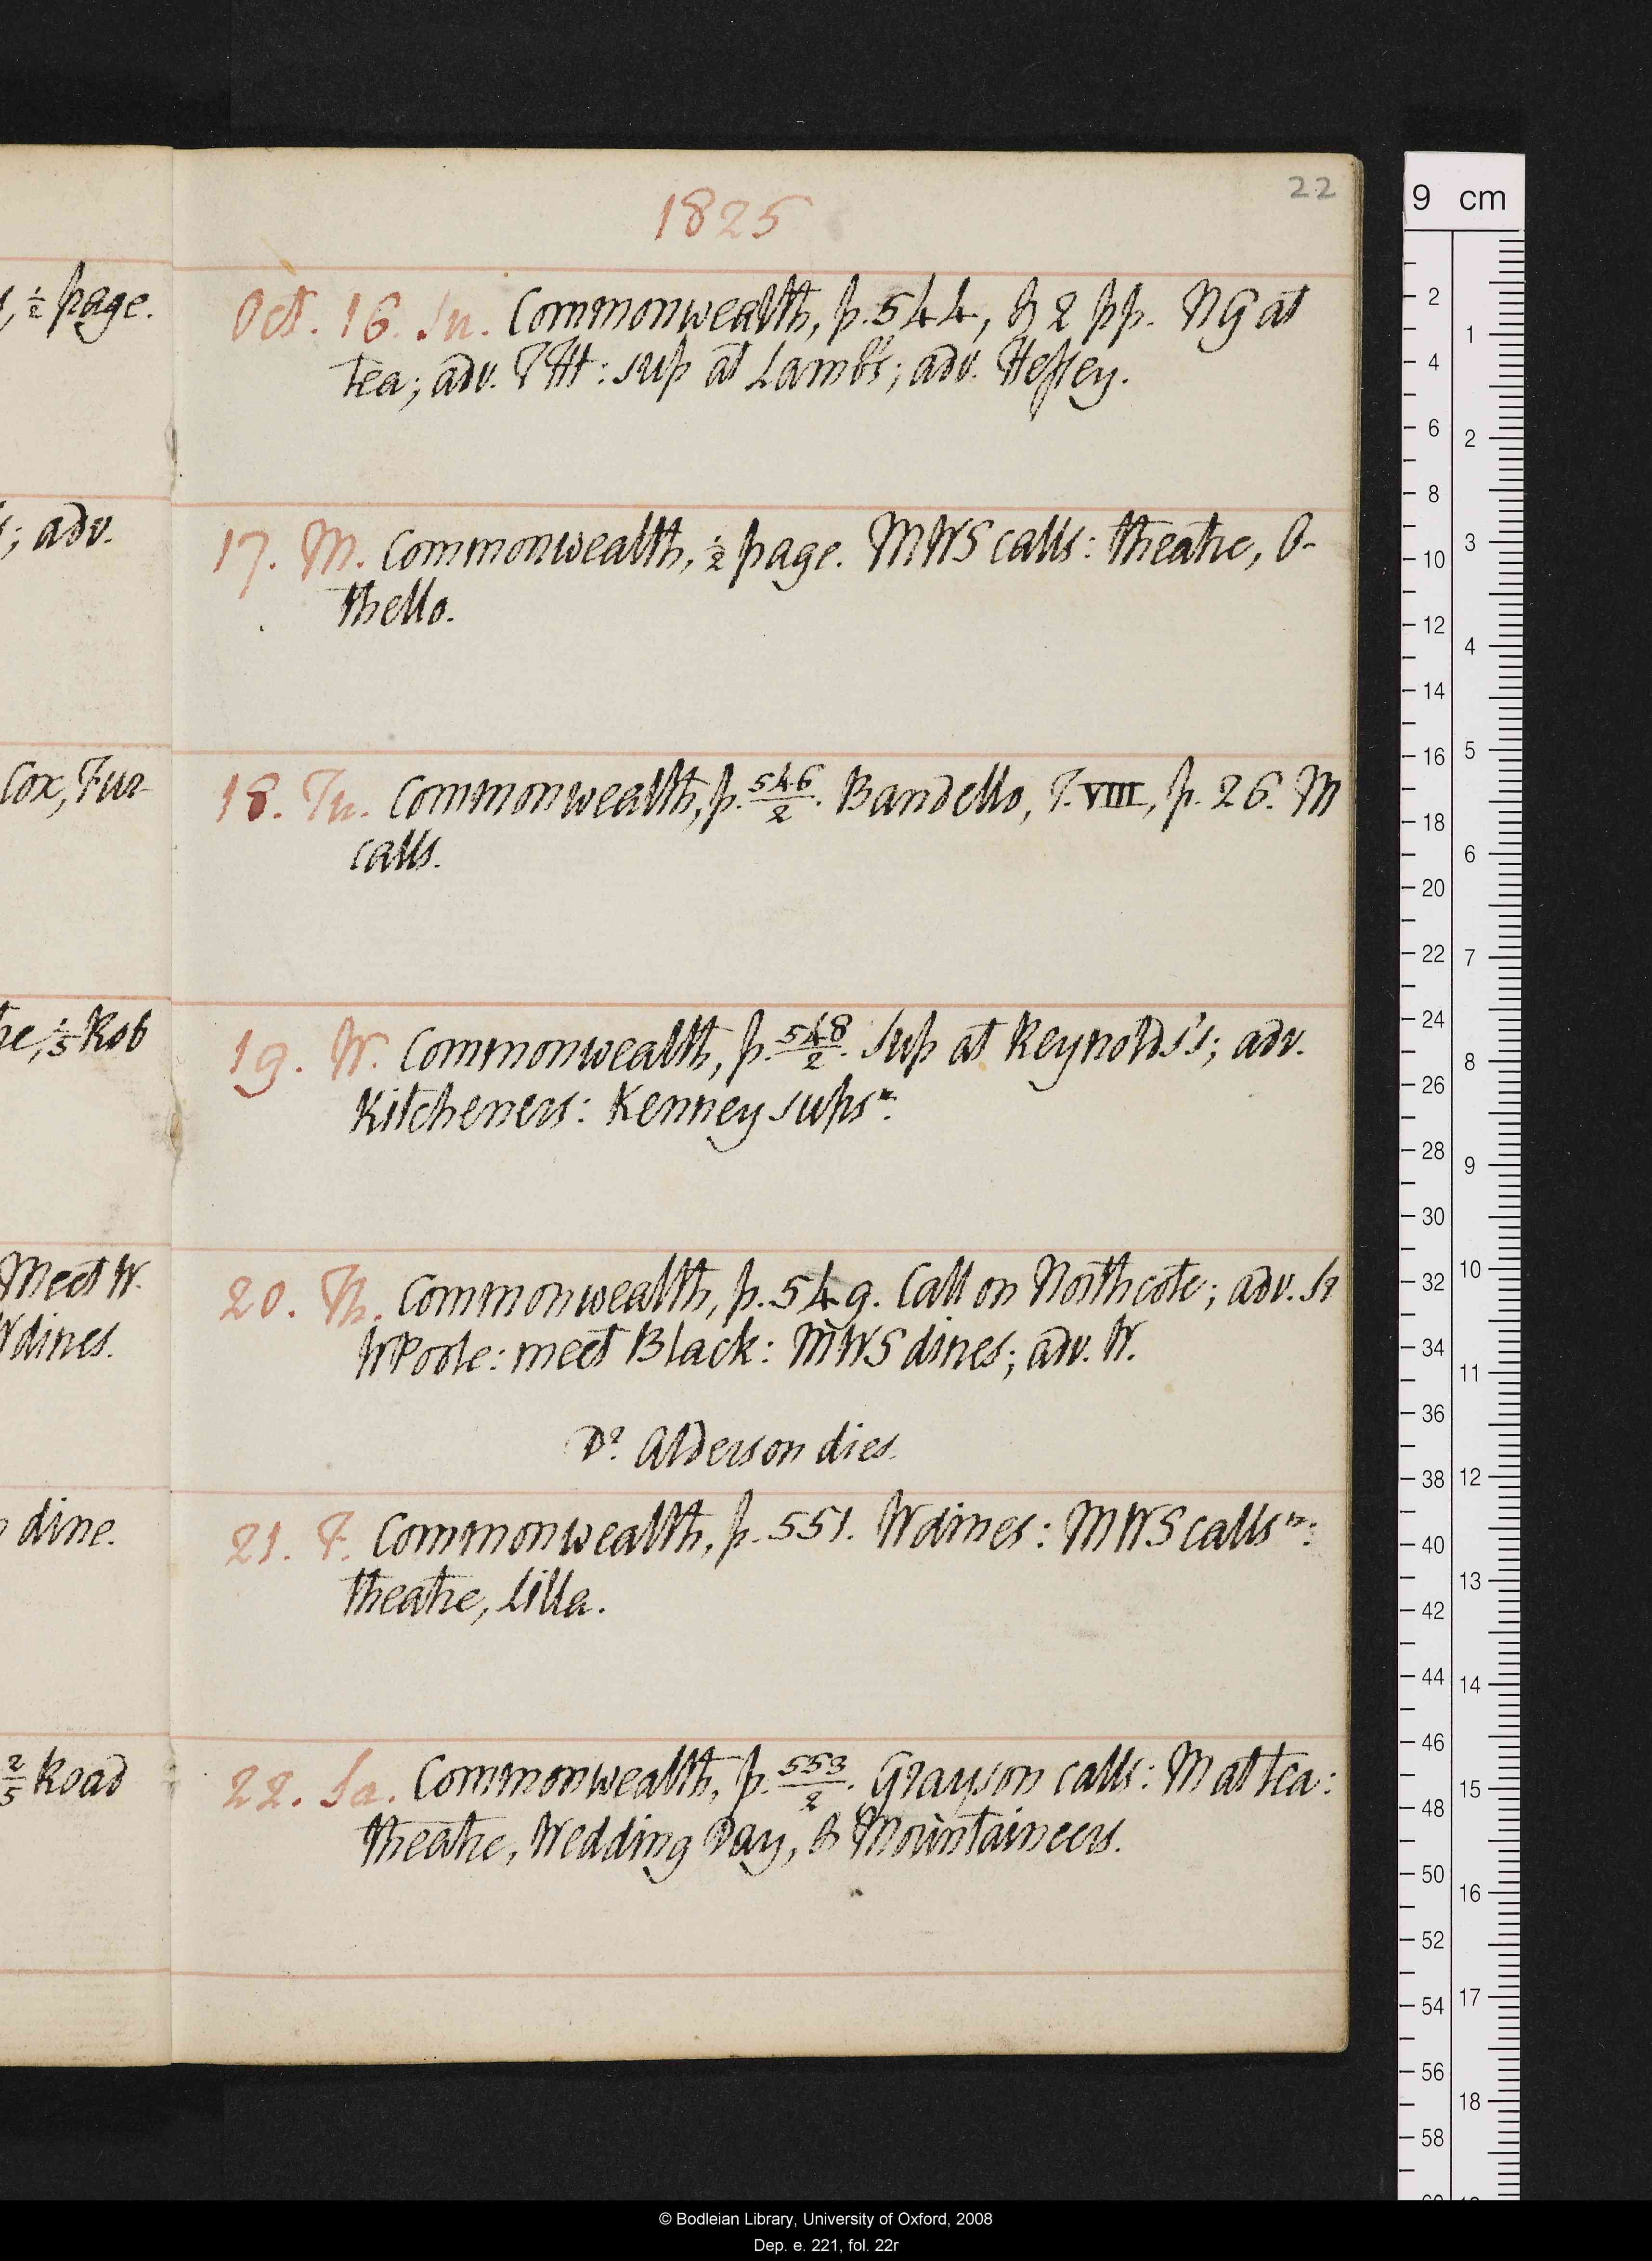 22
1825
, ½ page.
Oct. 16. Su. Commonwealth, p. 544, & 2 pp. NG at
tea; adv. TH: sup at Lamb's; adv. Hessey.
; adv.
17. M. Commonwealth, ½ page. MWS calls: theatre, O-
thello.
Cox, Fur
18. Tu. Commonwealth, p. 546/2. Bandello, T. VIII, p. 26. M
calls.
1/5 Rob
19. W. Commonwealth, p. 548/2. Sup at Reynolds's; adv.
Kitcheners: Kenney sups n.
Meet W.
20. Th. Commonwealth, p. 549. Call on Northcote; adv. Sr
Wdines.
W Poole: meet Black: MWS dines; adv. W.
Dr. Alderson dies.
dine.
21. F. Commonwealth, p. 551. W dines: MWS calls n:
theatre, Lilla.
2/5 Road
22. Sa. Commonwealth, p. 553/2. Grayson calls: M at tea:
theatre, Wedding Day, & Mountaineers.
9 cm
2
1
4
6
2
8
10
3
12
4
14
16
5
18
6
20
22
7
24
8
26
28
9
30
32
10
34
11
36
38
12
40
13
42
44
14
46
15
48
50
16
52
54
17
56
18
58
© Bodleian Library, University of Oxford, 2008
Dep. e. 221, fol. 22r